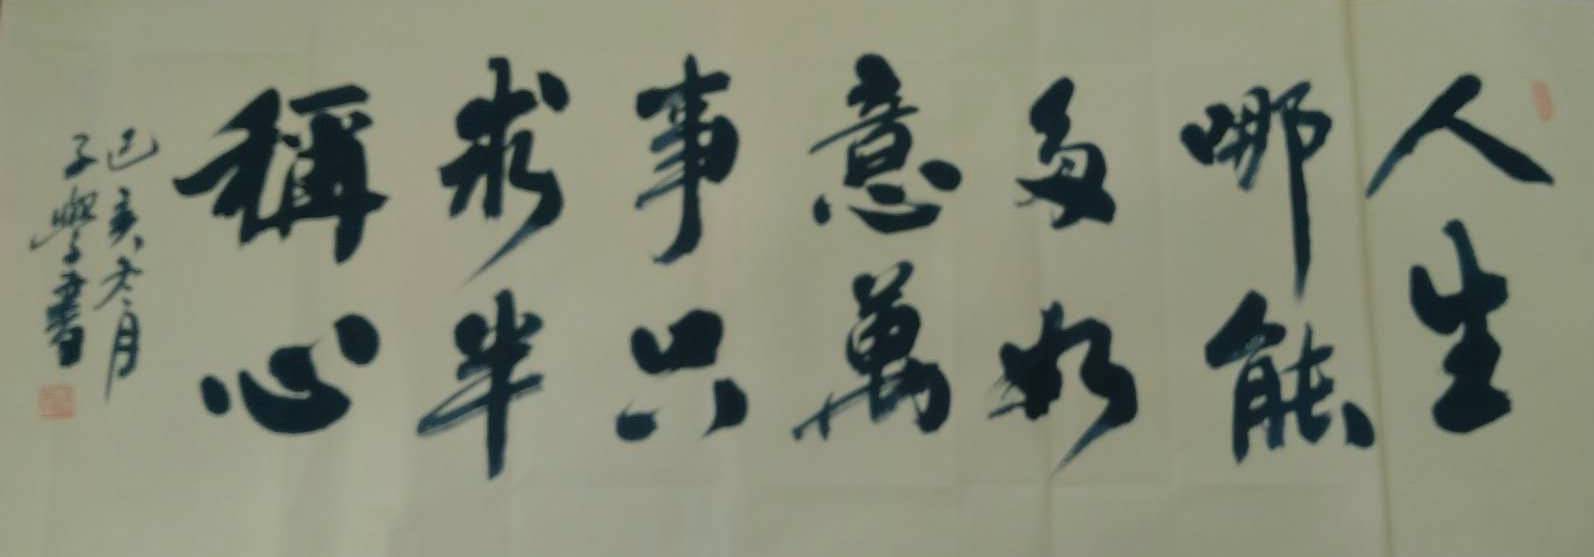 人生
哪能
多如
意萬
事只
求半
稱心
己亥冬月
子學書